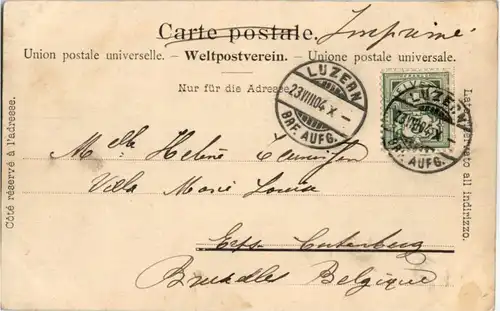 Carte postale. Imprimé
Union postale universelle. – Weltpostverein. – Unione postale universale.
Nur für die Adresse
LUZERN
23.VIII.04.X–
BRF. AUFG.
HELVETIA
FRANCO
LUZERN
23.VIII.04.X
BRF. AUFG.
Côté réservé à l'adresse.
Lato riservato all indirizzo.
Melle Helène
Villa Marie Louise
Bruxelles Belgique